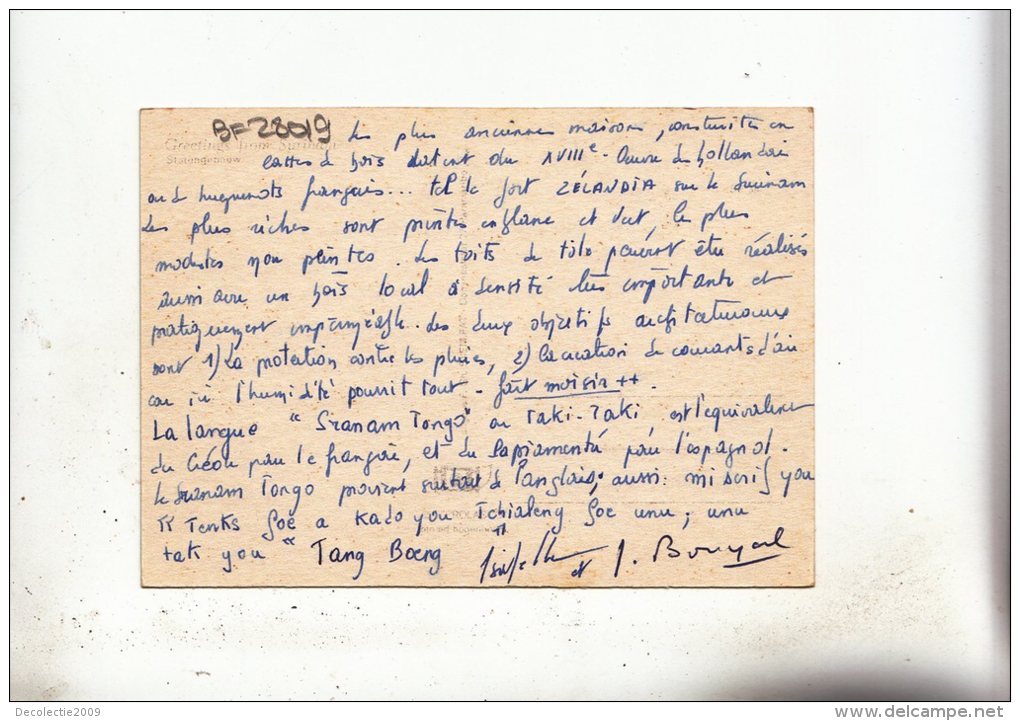 BF 28019
Les plus anciennes maisons, construites en
Greetings from Surinam
lattes de bois datent du XVIIIe. Oeuvre de hollandais
ou de huguenots français... tel le fort ZÉLANDIA sur le Surinam
Les plus riches sont peintes en blanc et vert, les plus
modestes non peintes. Les toits de tole peuvent être réalisés
aussi avec un bois local à densité très importante et
pratiquement imperméable. Les deux objectifs architecturaux
sont 1) La protection contre les pluies, 2) la création de courants d'air
car ici l'humidité pourrit tout - fait moisir ++.
La langue "Sranam Tongo" ou Taki-Taki, est l'équivalent
du Créole pour le français, et du Papiamentú pour l'espagnol.
Le Sranam Tongo provient surtout de l'anglais; aussi: mi scrif you
Tenks foe a kado you foe unu; unu
tak you" Tang Boeng
et J. Bouyal
Decolectie2009
delcampe.net